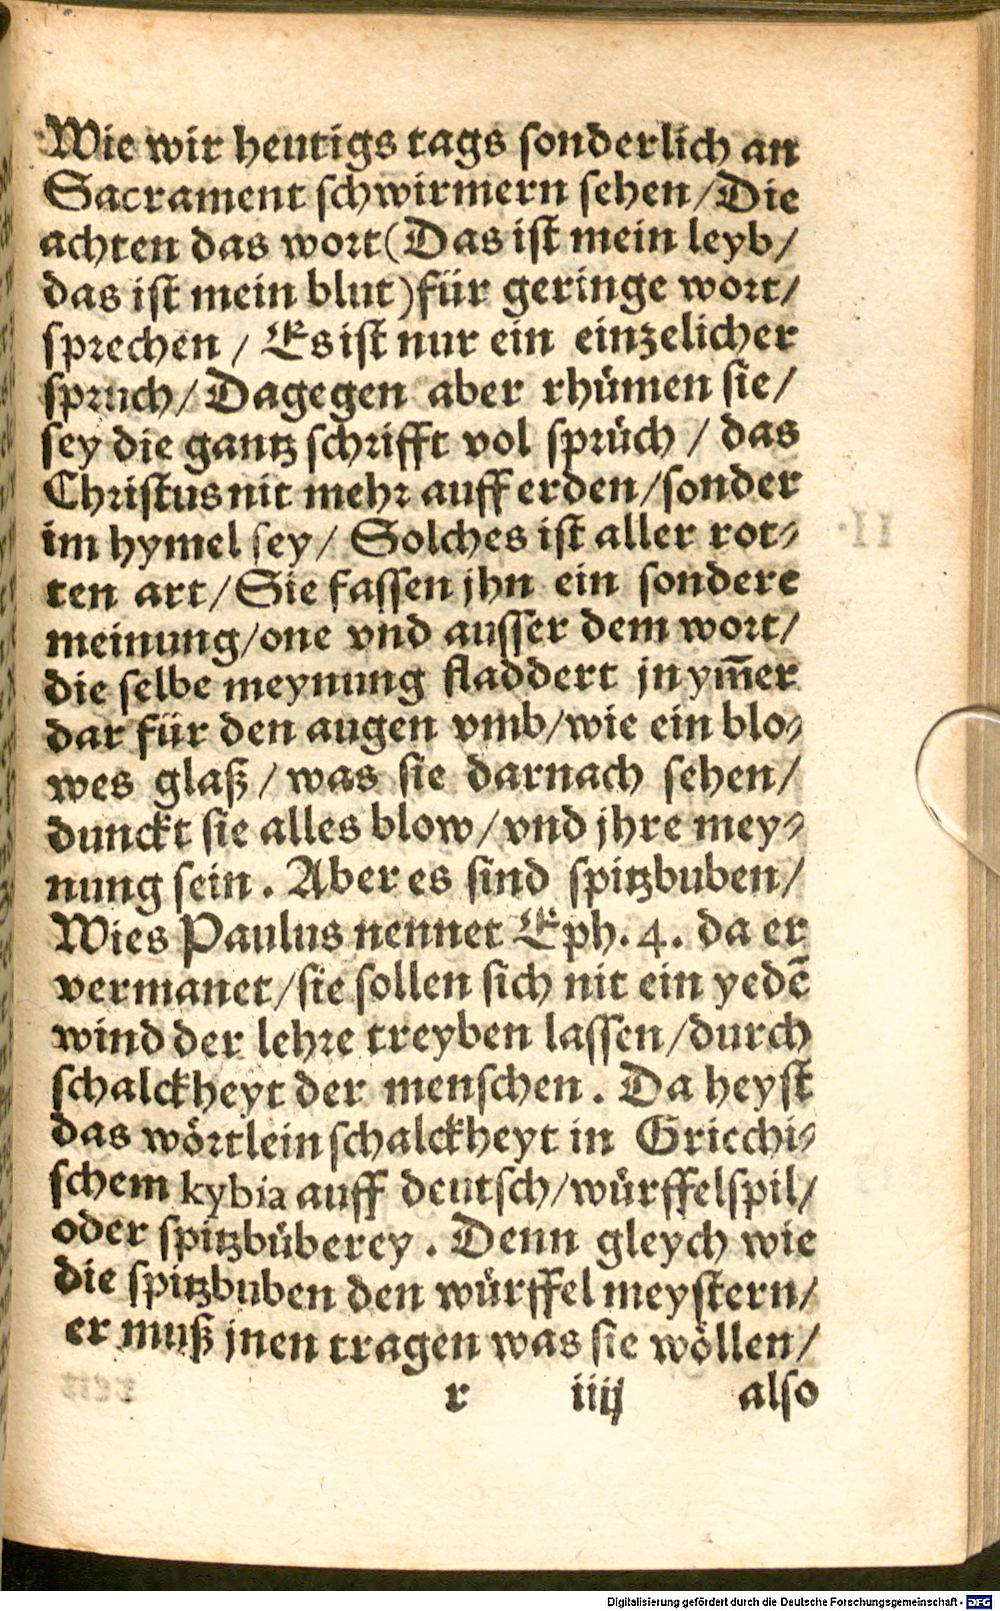 Wie wir heutigs tags sonderlich an
Sacrament schwirmern sehen/Die
achten das wort(Das ist mein leyb/
das ist mein blut)für geringe wort/
sprechen / Es ist nur ein einzelicher
spruch/Dagegen aber rhümen sie/
sey die gantz schrifft vol sprüch / das
Christus nit mehr auff erden/sonder
im hymel sey/ Solches ist aller rot⸗
ten art/Sie fassen jhn ein sondere
meinung/one vnd ausser dem wort/
die selbe meynung fladdert jn ym̃er
dar für den augen vmb/wie ein blo⸗
wes glaß/was sie darnach sehen/
dunckt sie alles blow/vnd jhre mey⸗
nung sein. Aber es sind spitzbuben/
Wies Paulus nennet Eph. 4. da er
vermanet/sie sollen sich nit ein yedẽ
wind der lehre treyben lassen/durch
schalckheyt der menschen. Da heyst
das wörtlein schalckheyt in Griechi⸗
schem kybia auff deutsch/würffelspil/
oder spitzbüberey. Denn gleych wie
die spitzbuben den würffel meystern/
er muß jnen tragen was sie wöllen/
r iiij also
Digitalisierung gefördert durch die Deutsche Forschungsgemeinschaft - DFG